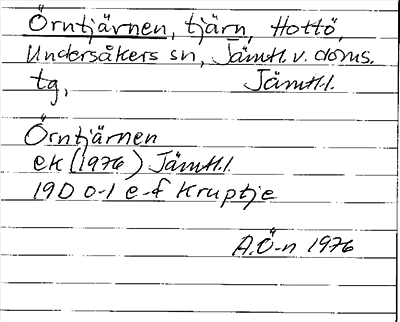 Örntjärnen, tjärn, Hottö,
Undersåkers sn, Jämtl. v. doms.
tg, Jämtl.l.
Örntjärnen
ek (1976) Jämtl.l.
19D 0-1 e-f Kruptje
A.Ö-n 1976